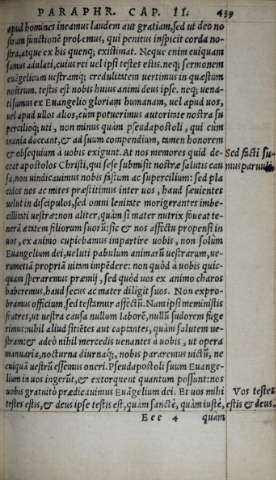 PARAPHR. CAP. II. 439
apud homines ineamus laudem aut gratiam, sed ut deo no
stram functionē probemus, qui penitus inspicit corda no-
stra, atque ex his quenq; existimat. Neque enim cuiquam
sumus adulati, cuius rei vel ipsi testes estis. neq; sermonem
euāgelicum uestramq; credulitatem uertimus in quæstum
nostrum. testis est nobis huius animi deus ipse. neq; uena-
ti sumus ex Euangelio gloriam humanam, uel apud uos,
uel apud ullos alios, cum potuerimus autoritate nostra su
perciliosq; uti, non minus quàm pseudapostoli, qui cum
uania doceant, & ad suum compendium, tamen honorem
& obsequium à uobis exigunt. At nos memores quid de-
ceat apostolos Christi, qui sese submisit nostræ salutis cau
sa, non uindicauimus nobis fastum ac supercilium: sed pla
cidos nos ac mites præstitimus inter uos, haud sæuientes
uelut in discipulos, sed omni lenitate morigerantes imbe-
cillitati uestræ: non aliter, quàm si mater nutrix foueat te-
nerā ætatem filiorum suorū: sic & nos affectu propensi in
uos, ex animo cupiebamus impartire uobis, non solùm
Euangelium dei, ueluti pabulum animarū uestrarum, ue-
rumetiā propriā uitam impēdere: non quòd à uobis quic-
quam speraremus præmij, sed quòd uos ex animo charos
haberemus, haud secus ac mater diligit suos. Non expro-
bramus officium, sed testamur affectū. Nam ipsi meministis
fratres, ut uestra causa nullum laborē, nullū sudorem fuge
rimus: nihil aliud sitiētes aut captantes, quàm salutem ue-
stram: & adeò nihil mercedis uenantes à uobis, ut opera
manuaria, nocturna diurnaq;, nobis pararemus uictū, ne
cuiquā uestrū essemus oneri. Pseudapostoli suum Euange-
lium in uos ingerūt, & extorquent quantum possunt: nos
uobis gratuitò prædicauimus Euāgelium dei. Et uos mihi
testes estis, & deus ipse testis est, quàm sanctè, quàm iustè,
Eee 4 quàm
Sed facti su-
mus paruuli
Vos testes
estis & deus.